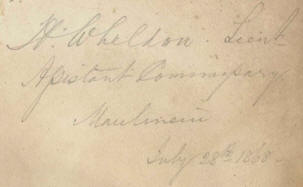 H. Wheldon. Lieut
Assistant Commissary
Maulmein
July 28th 1868